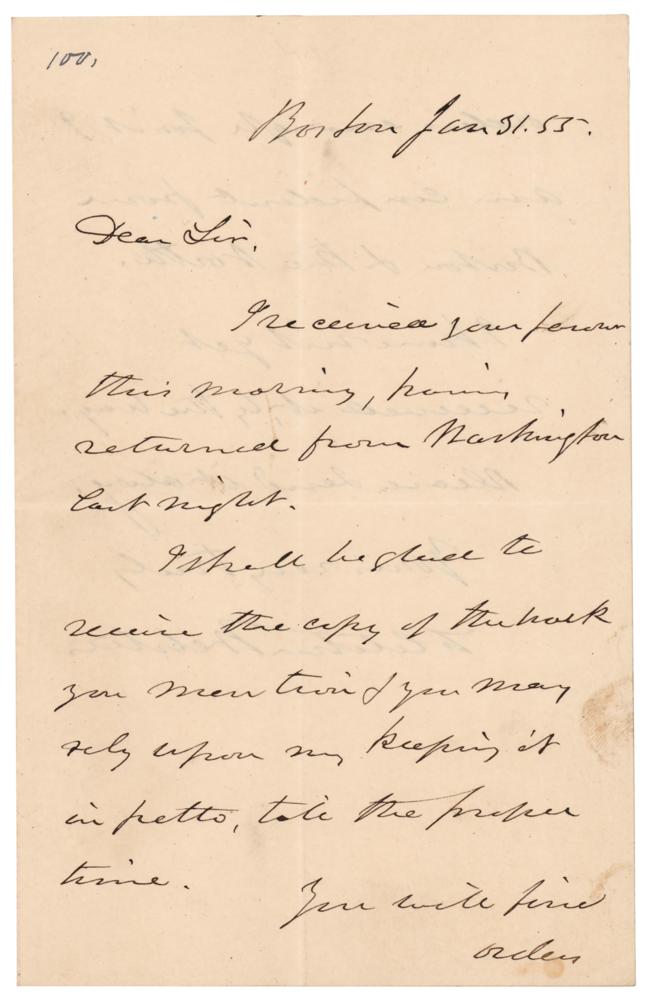 100,
Boston Jan 31. 55.
Dear Sir,
I received your favor
this morning, having
returned from Washington
last night.
I shall be glad to
receive the copy of the book
you mention & you may
rely upon my keeping it
in petto, till the proper
time.
You will find
orders